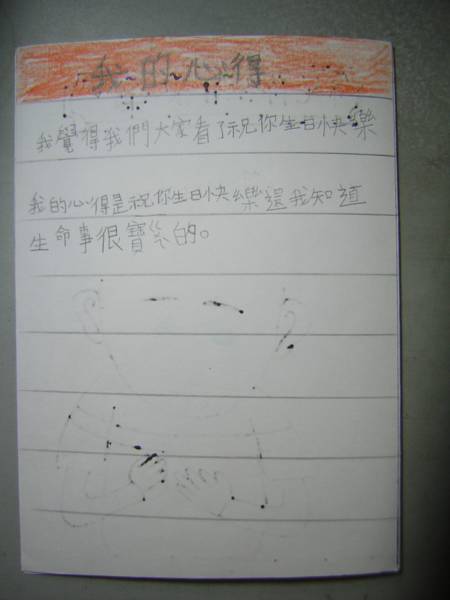 我的心得
我覺得我們大家看了祝你生日快樂
我的心得是祝你生日快樂這我知道
生命事很寶的。